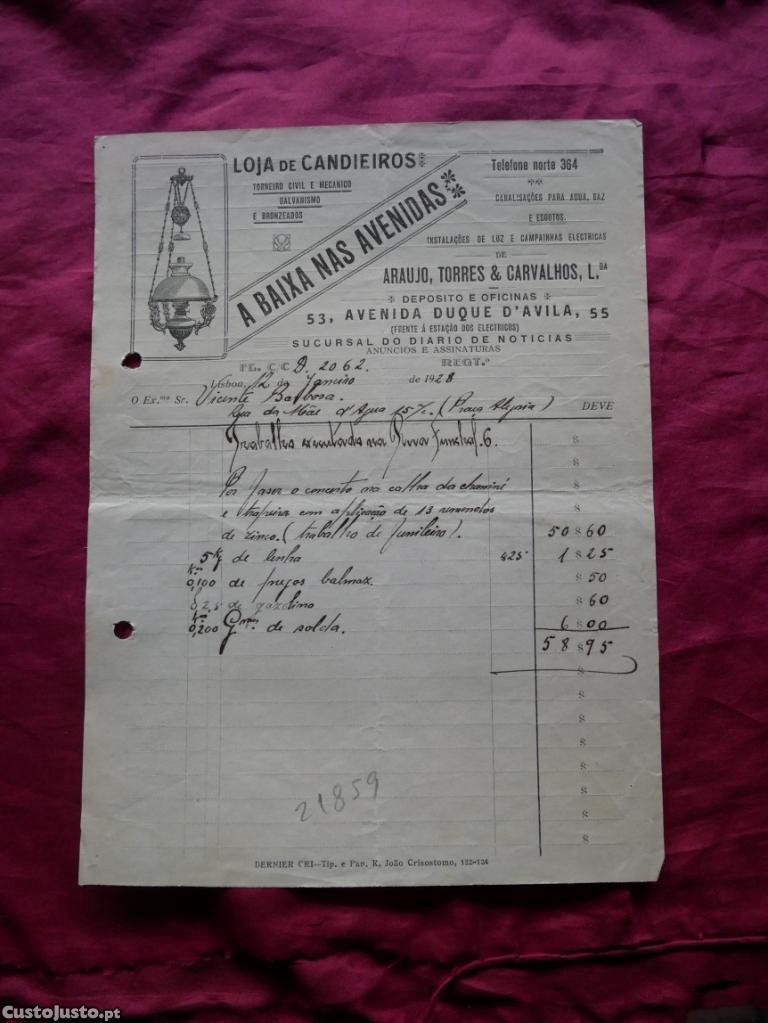 LOJA DE CANDIEIROS
TORNEIRO CIVIL E MECANICO
GALVANISMO
E BRONZEADOS
A BAIXA NAS AVENIDAS
Telefone norte 364
CANALISAÇÕES PARA AGUA, GAZ
E ESGOTOS.
INSTALAÇÕES DE LUZ E CAMPAINHAS ELECTRICAS
DE
ARAUJO, TORRES & CARVALHOS, L.DA
DEPOSITO E OFICINAS
53, AVENIDA DUQUE D'AVILA, 55
(FRENTE Á ESTAÇÃO DOS ELECTRICOS)
SUCURSAL DO DIARIO DE NOTICIAS
ANUNCIOS E ASSINATURAS
FL. C/C D. 2062. REGT.º
Lisboa, 12 de Janeiro de 1928
O Ex.mo Sr. Vicente Barbosa.
Rua da Mãe d'Agua (Praça Alegria) DEVE
Trabalho executado na Rua Funchal. 6.
Por faser o concerto na calha da chaminé
e trapeira com aplicação de 13
de zinco. (trabalho de funileiro). 50$60
5 Kg de lenha $25 1$25
0,100 de balmax. $50
2,5 de gazolina $60
0,200 Gmas de solda. 6$00
58$95
21859
DERNIER CRI—Tip. e Pap. R. João Crisostomo, 122-124
CustoJusto.pt